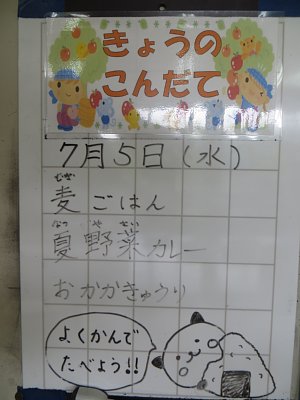 きょうの
こんだて
7月5日(水)
むぎ
麦ごはん
なつ や さい
夏野菜カレー
おかかきゅうり
よくかんで
たべよう!!